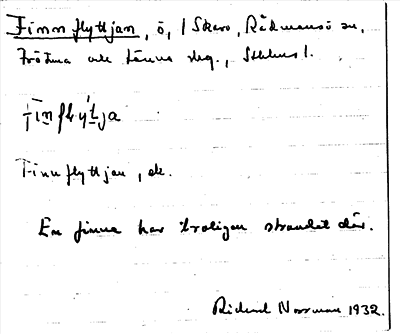 Finnflyttjan, ö, i Skavo, Rådmansö sn,
Frötuna och Länna skg., Sthlms l.
Fìnflỳt̯ja
Finnflyttjan, ek.
En finne har troligen strandat där.
Rickard Norrman 1932.